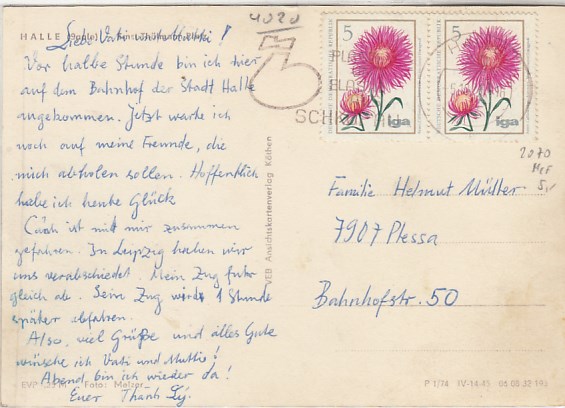 HALLE (Saale)
4020
Liebe Vati und Mutti!
Vor halbe Stunde bin ich hier
auf dem Bahnhof der Stadt Halle
angekommen. Jetzt warte ich
noch auf meine Freunde, die
mich abholen sollen. Hoffentlich
habe ich heute Glück
ist mit mir zusammen
gefahren. In Leipzig haben wir
uns verabschiedet. Mein Zug fuhr
gleich ab. Sein Zug wird 1 Stunde
später abfahren.
Also, viel Grüße und alles Gute
wünsche ich Vati und Mutti!
Abend bin ich wieder da!
Euer Thanh Lý.
Foto: Melzer
VEB Ansichtskartenverlag Köthen
5
DEUTSCHE DEMOKRATISCHE REPUBLIK
iga
5
DEUTSCHE DEMOKRATISCHE REPUBLIK
iga
2070
MeF
5,-
Familie Helmut Müller
7907 Plessa
Bahnhofstr. 50
P 1/74 IV-14-45 06 05 32